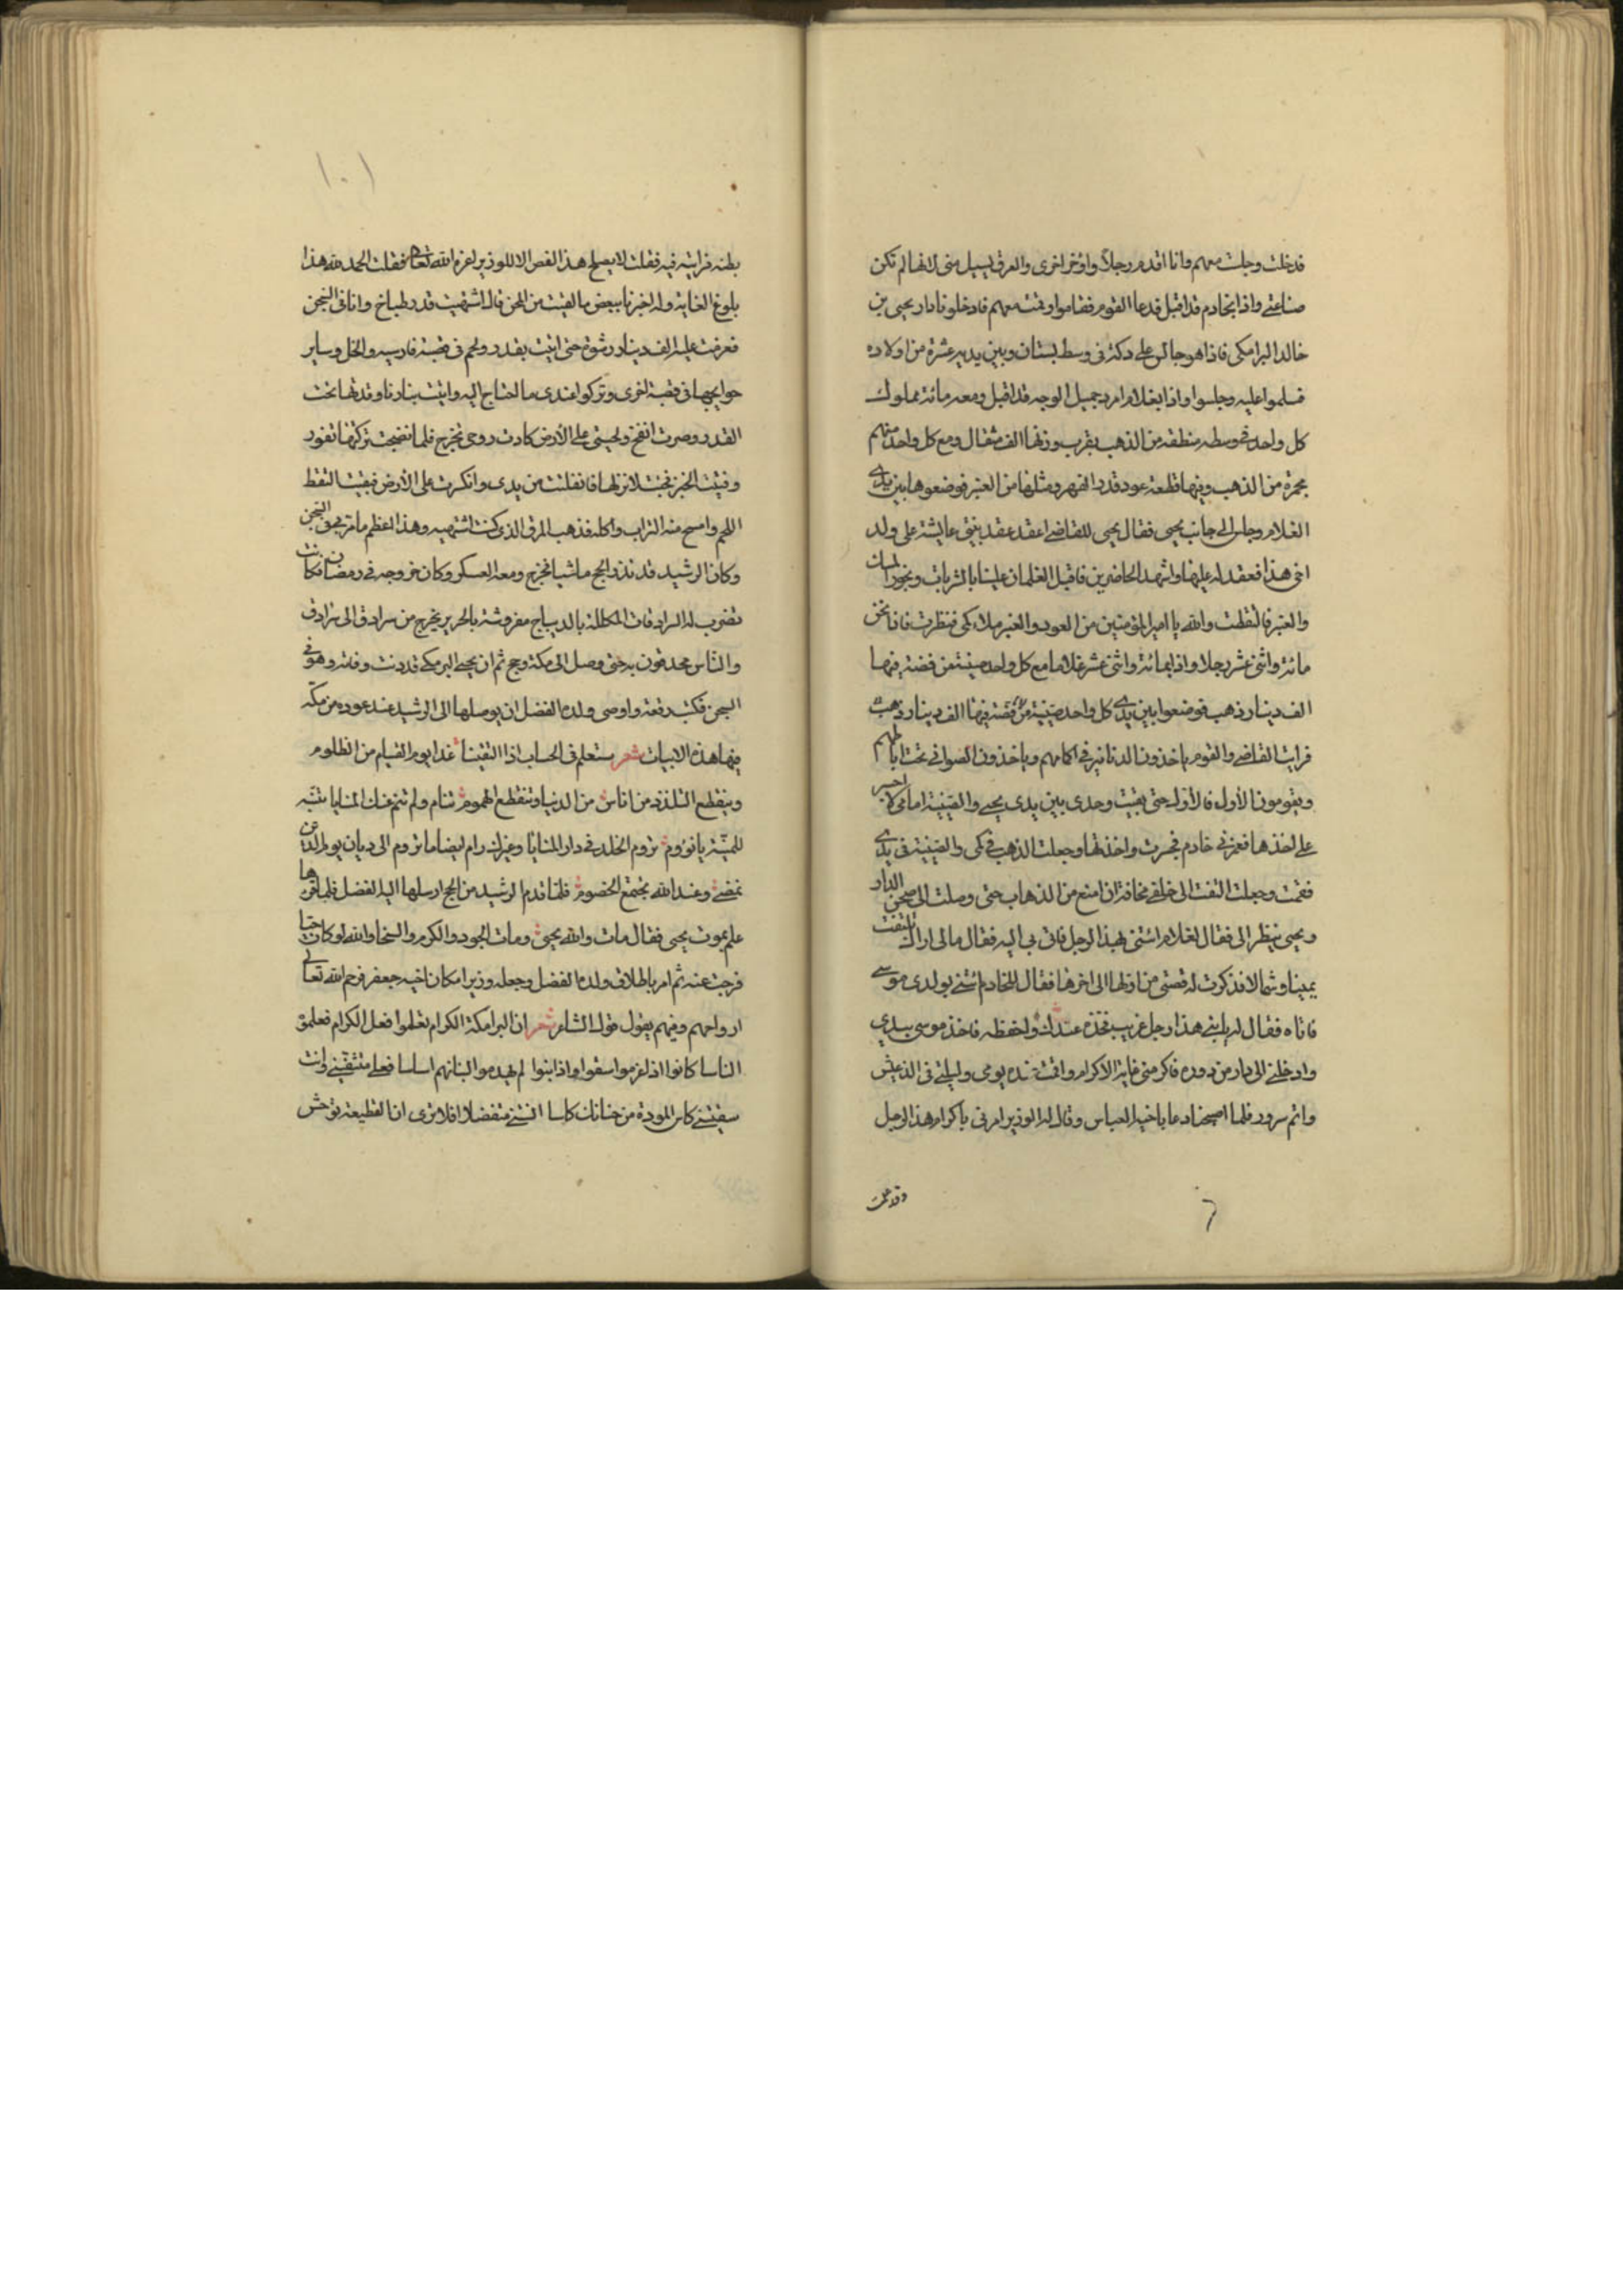 فدخلت وجلست معهم وانا اقدم رجلاً واؤخر اخرى والعرق يسيل منى لانها لم تكن
صناعتى واذا بخادم قد اقبل فدعا القوم فقاموا وقمت معهم فادخلونا دار يحيى بن
خالد البرامكى فاذا هو جالس على دكة فى وسط بستان وبين يديه عشرة من اولاده
فسلموا عليه وجلسوا واذا بغلام امرد جميل الوجه قد اقبل ومعه مائة مملوك
كل واحد فى وسطه منطقه من الذهب يقرب وزنها الف مثقال ومع كل واحد منهم
مجمرة من الذهب وفيها قطعة عود قدر الفهر ومثلها من العنبر فوضعوها بين يدى
الغلام وجلس الى جانب يحيى فقال يحيى للقاضى اعقد عقد بنتى عايشة على ولد
اخى هذا فعقد له عليها واشهد الحاضرين فاقبل الغلمان علينا بالشربات وبخور اللبان
والعنبر فالتقطت والله يا امير المؤمنين من العود والعنبر ملأ كمى فنظرت فاذا نحن
مائة واثنى عشر رجلا واذا بمائة واثنى عشر غلاما مع كل واحد صينية من فضة فيها
الف دينار ذهب فوضعوا بين يدى كل واحد صينية من فضة فيها الف دينار ذهب
فرايت القاضى والقوم ياخذون الدنانير فى اكمامهم وياخذون الصوانى تحت اباطهم
ويقومون الأول فالأول حتى بقيت وحدى بين يدى يحيى والصينية امامى لا اجسر
على اخذها فغمزنى خادم فجسرت واخذتها وجعلت الذهب فى كمى والصينية فى يدى
فقمت وجعلت التفت الى خلفى مخافة ان امنع من الذهاب حتى وصلت الى صحن الدار
ويحيى ينظر الى فقال لغلام ائتنى بهذا الرجل فاتى بى اليه فقال مالى اراك تلتفت
يمينا وشمالا فذكرت له قصتى من اولها الى اخرها فقال للخادم ائتنى بولدى موسى
فاتاه فقال له يا بنى هذا رجل غريب فخذه عندك واحفظه فاخذ موسى بيدي
وادخلنى الى دار من دوره فاكرمنى غاية الاكرام واقمت عنده يومى وليلتى فى الذ عيش
واتم سرور فلما اصبحنا دعا باخيه العباس وقال له الوزير امرنى باكرام هذا الرجل
وقد علمت
١٠١
بطنه فرايته فيه فقلت لا يصلح هذا الفص الا للوزير اعزه الله تعالى فقلت الحمد لله هذا
بلوغ الغاية واخبرنا ببعض ما لقيت من المحن قال اشتهيت قدر طباخ وانا فى السجن
فغرمت عليه الف دينار رشوة حتى اتيت بقدر ولحم فى قصبة فارسيه والخل وساير
حوايجها فى قصبة اخرى وتركوا عندى ما احتاج اليه واتيت بنار ناوقدتها تحت
القدر وصرت انفخ ولحيتى على الأرض كادت روحى تخرج فلما نضجت تركتها تفور
وفتيت الخبز نجئت لانزلها فانفلتت من يدى وانكسرت على الأرض فبقيت التقط
اللحم وامسح منه التراب واكله فذهب المرق الذى كنت اشتهيه وهذا اعظم ما مر بى فى السجن
وكان الرشيد قد نذر الحج ماشيا فخرج ومعه العسكر وكان خروجه فى رمضان فكانت
تضرب له السرادقات المكللة بالديباج مفروشة بالحرير يخرج من سرادق الى سرادق
والناس محدقون به حتى وصل الى مكة وحج ثم ان يحيى البرمكى قد دنت وفاته وهو فى
السجن فكتب رقعة واوصى ولده الفضل ان يوصلها الى الرشيد عند عوده من مكة
فيها هذه الابيات شعر ستعلم فى الحساب اذا التقينا غدا يوم القيام من الظلوم
وينقطع التلذذ من اناس من الدنيا وتنقطع الهموم تنام ولم تنم عنك المنايا تنبه
للمنية يا نؤوم تروم الخلد فى دار المنايا وغيرك رام ايضا ما تروم الى ديان يوم الدين
نمضى وعند الله تجتمع الخصوم فلما قدم الرشيد من الحج ارسلها اليه الفضل فلما قراها
علم بموت يحيى فقال مات والله يحيى ومات الجود والكرم والسخا والله لو كان حيا
فرجت عنه ثم امر باطلاق ولده الفضل وجعله وزيرا مكان اخيه جعفر فرحم الله تعالى
ارواحهم وفيهم يقول قول الشاعر شعر ان البرامكة الكرام تعلموا فعل الكرام فعلموه
الناسا كانوا اذا غرسوا سقوا واذا بنوا لم يهدموا لبنانهم اساسا فعلى متشفتينى وانت
سقيتنى كاس المودة من حنانك كاسا انستنى متفضلا افلا ترى ان القطيعة توحش